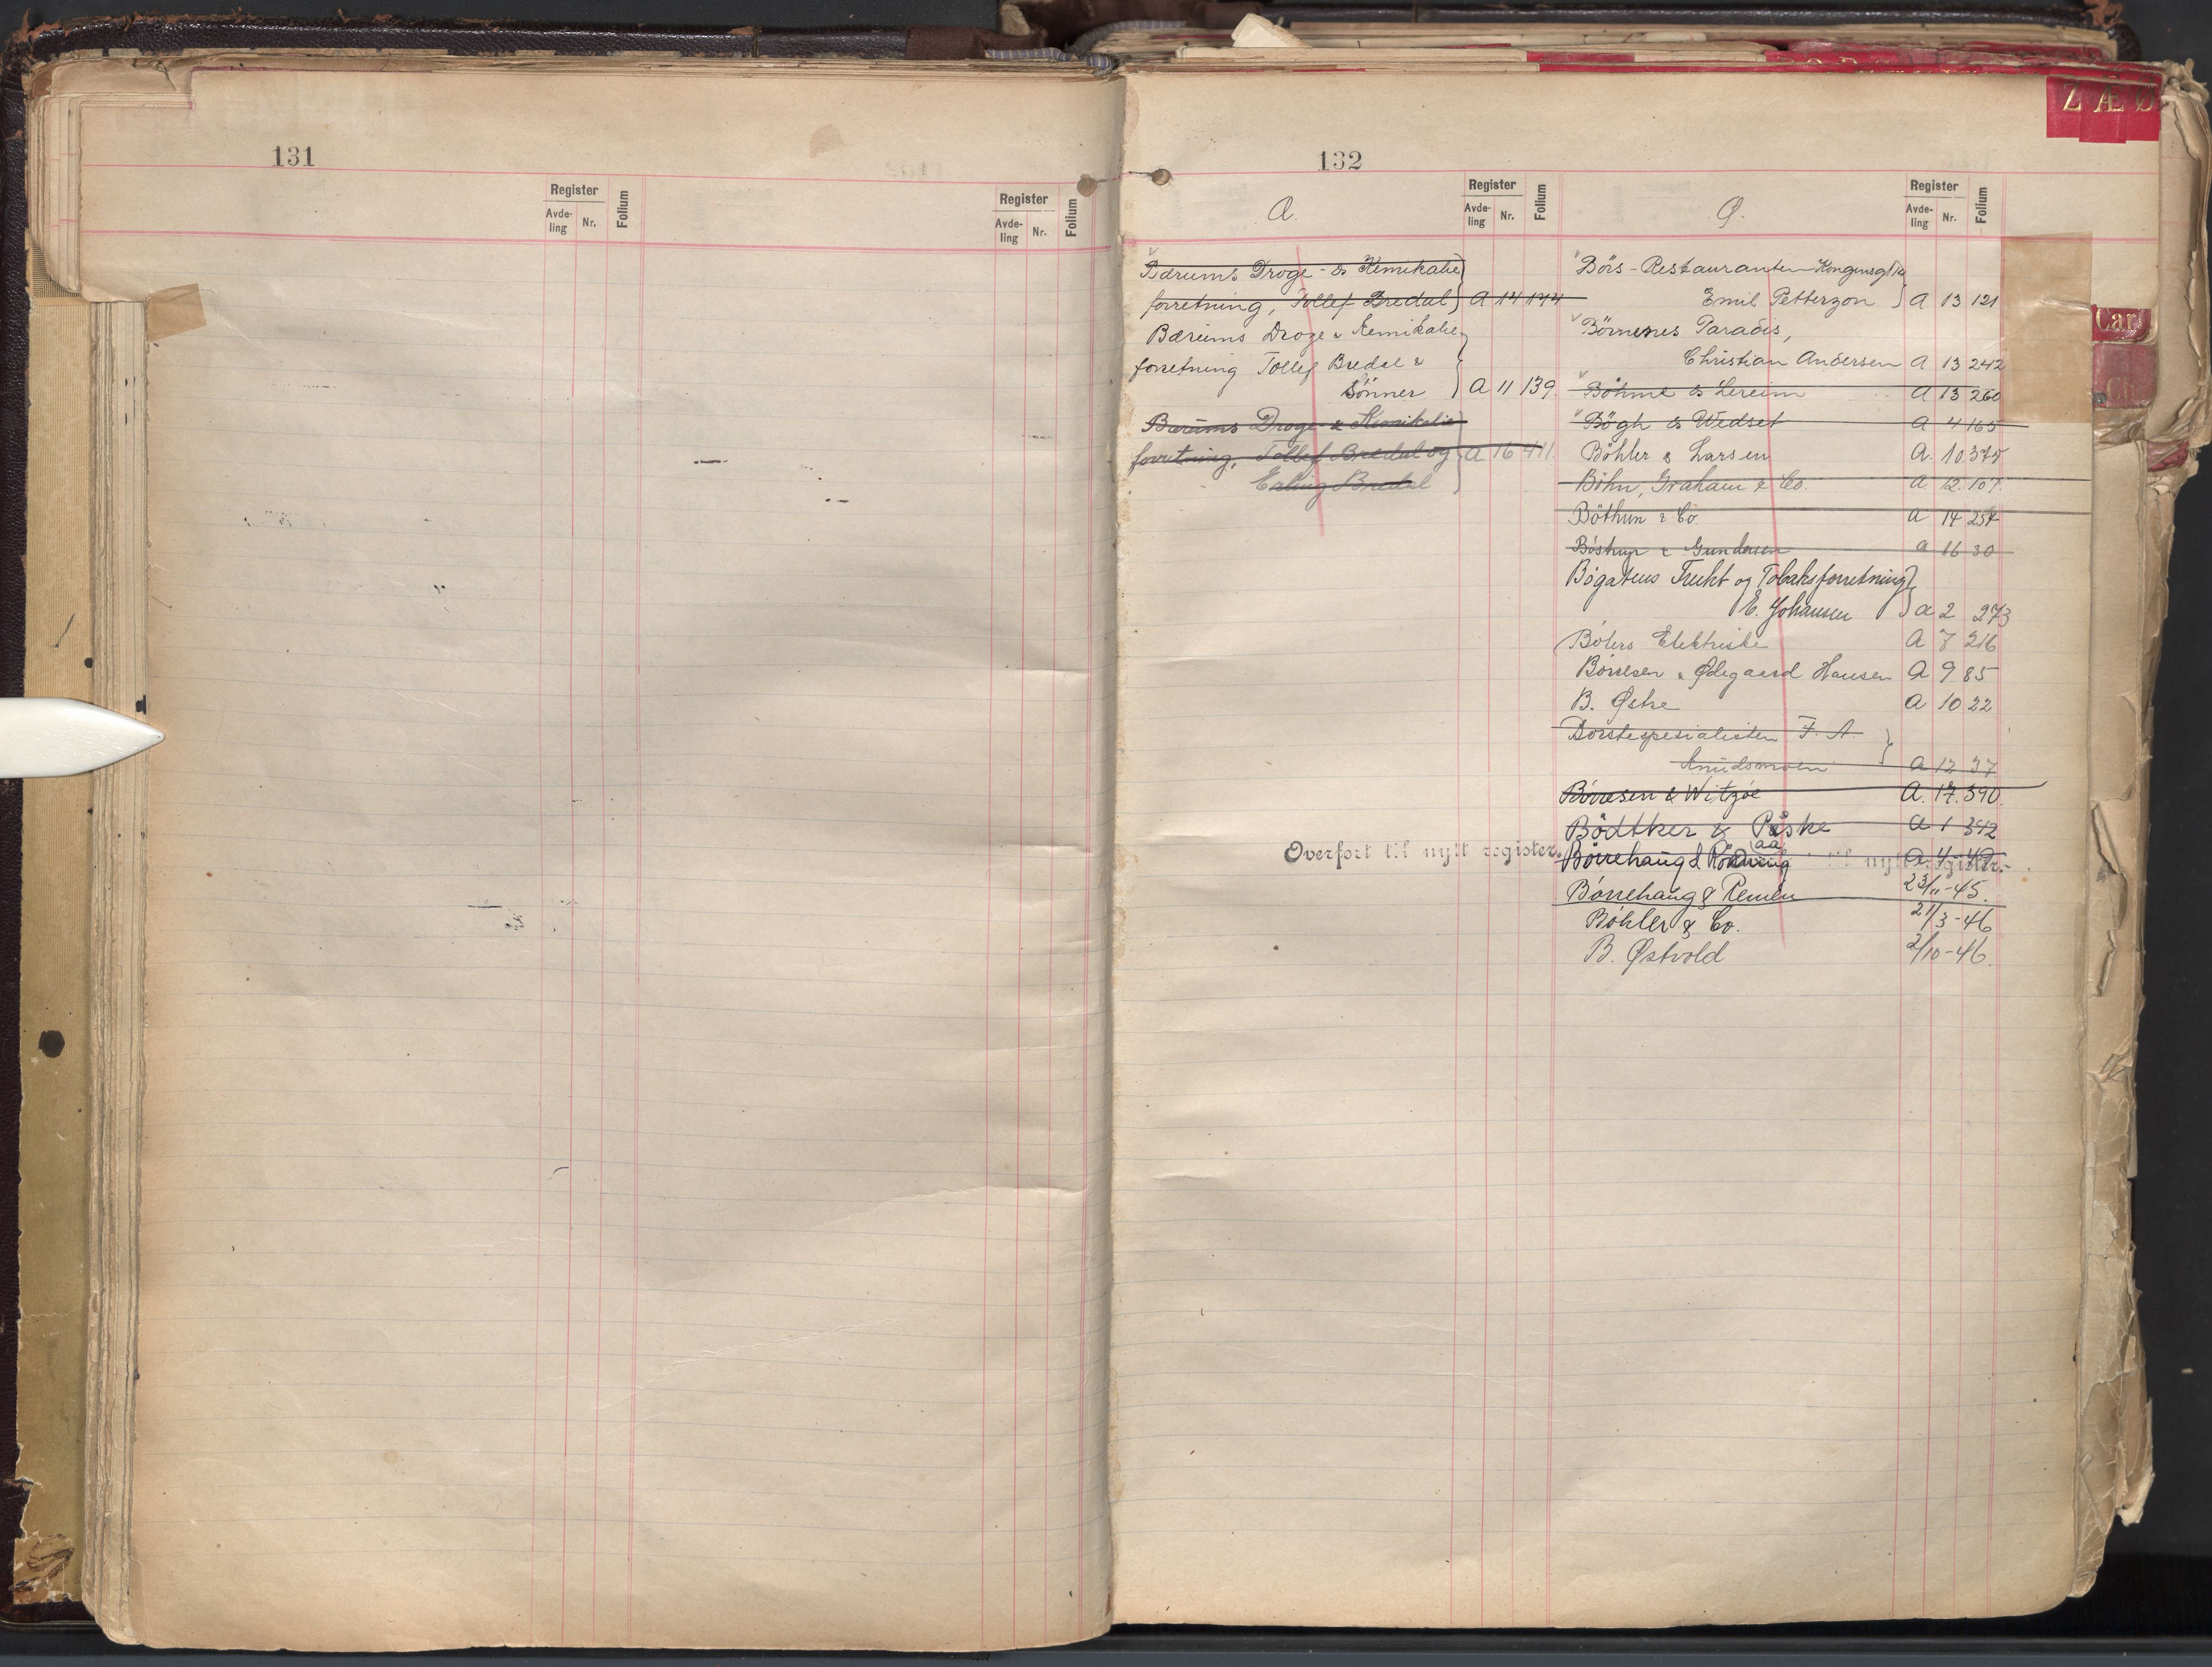 131
Register
Avde-
ling
Nr.
Folium
Register
Avde-
ling
Nr.
Folium
132
Z Æ Ø
Register
Avde-
ling
Nr.
Folium
Register
Avde-
ling
Nr.
Folium
Bærums Droge- & Kemikalie
forretning, Tollef Bredal A 14 144
Bærums Droge & Kemikalie
forretning Tollef Bredal &
Sönner A 11 139.
Bærums Droge- & Kemikalie
forretning, Tollef Bredal og A 16 411.
Erling Bredal
Overført til nytt register.
Ø.
Börs-Restauranten Kongensgt
Emil Petterzon A 13 121
Börnenes Paradis,
Christian Andersen A 13 242
Böhme & Lereim A 13 260
Bögh & Wedset A 4 165
Böhler & Larsen A. 10. 375
Böhn, Graham & Co. A. 12. 107.
Böthun & Co. A 14 254
Böstrup & Gundersen A 16 30
Bögatens Frukt og Tobaksforretning
E. Johansen A 2 273
Bölers Elektriske A 7 216
Börresen & Ødegaard Hansen A 9 85
B. Østre A 10 22
Börstespesialisten F. A.
Knudsmoen A 12 37
Börresen & Witzöe A. 17. 390.
Bödtker & Påske A 1 342
aa
Börrehaug & A 4 49
til nytt register.
Börrehaug & Remen 23/11-45.
Böhler & Co. 21/3-46
B. Østvold 2/10-46.
Car